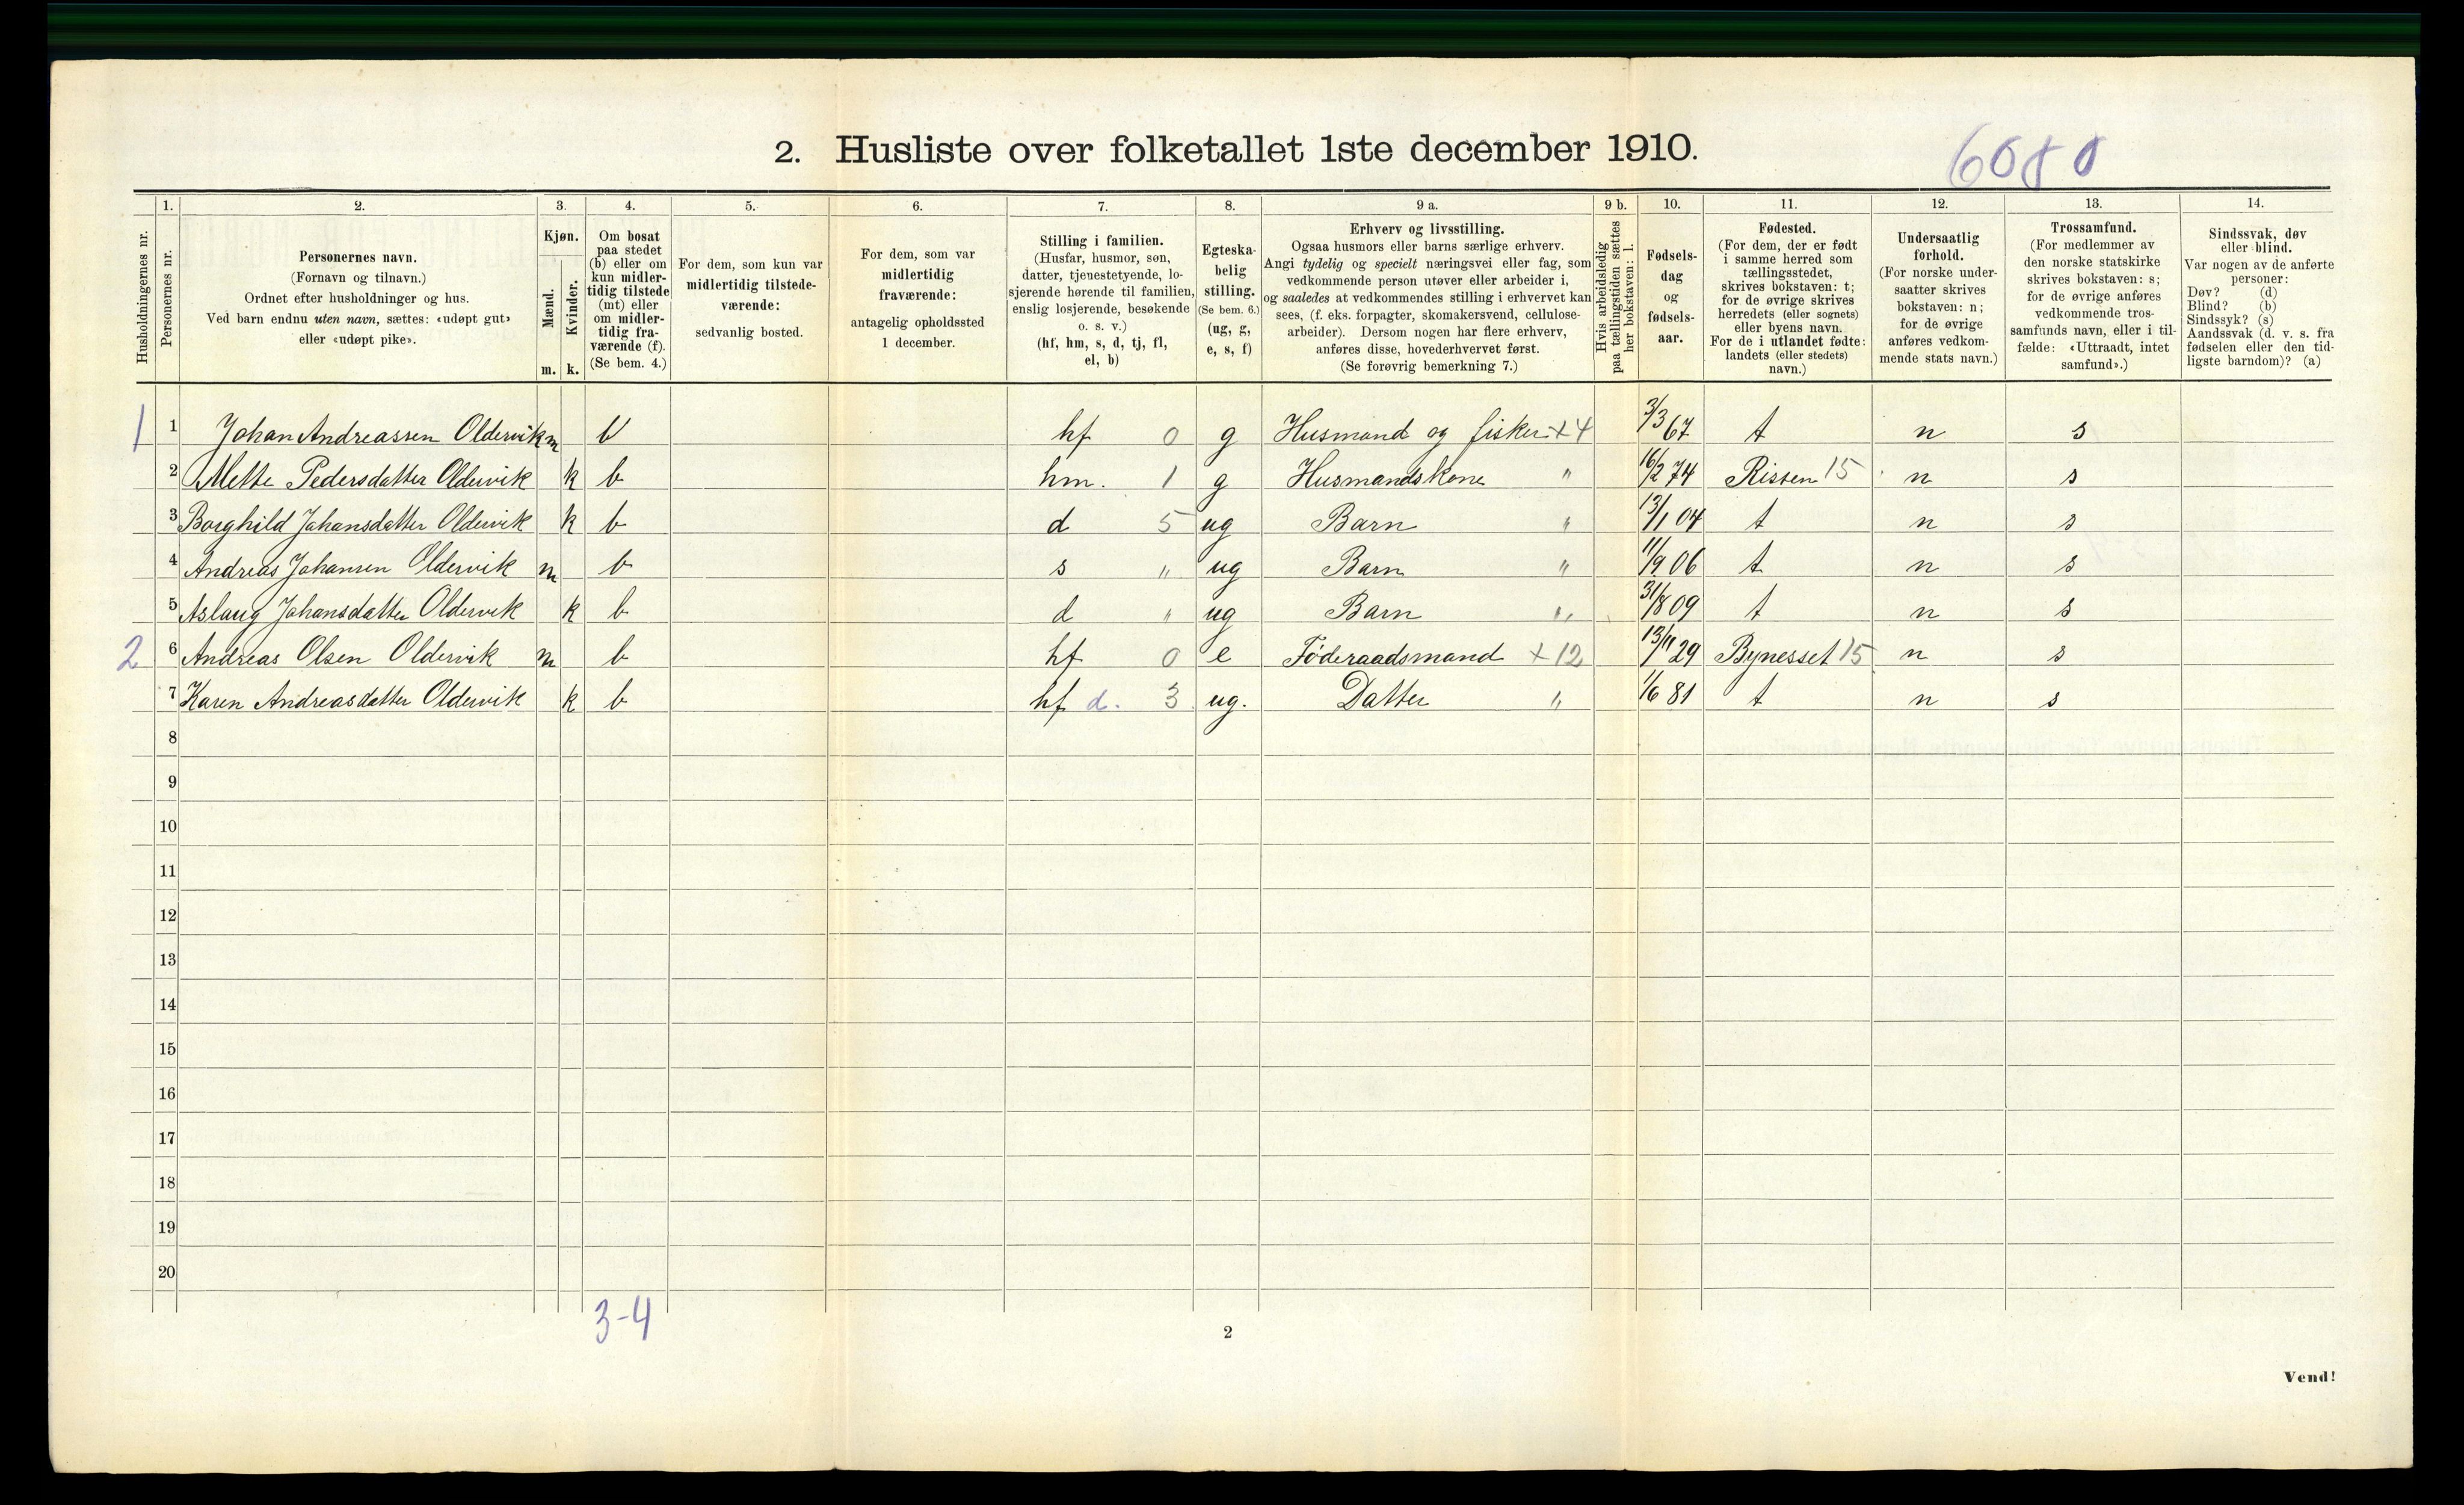 2. Husliste over folketallet 1ste december 1910.
6080
1. 2. 3. 4. 5. 6. 7. 8. 9 a. 9 b. 10. 11. 12. 13. 14.
Husholdningernes nr.
Personernes nr.
Personernes navn.
(Fornavn og tilnavn.)
Ordnet efter husholdninger og hus.
Ved barn endnu uten navn, sættes: «udøpt gut»
eller «udøpt pike».
Kjøn.
Mænd.
Kvinder.
m. k.
Om bosat
paa stedet
(b) eller om
kun midler-
tidig tilstede
(mt) eller
om midler-
tidig fra-
værende (f).
(Se bem. 4.)
For dem, som kun var
midlertidig tilstede-
værende:
sedvanlig bosted.
For dem, som var
midlertidig
fraværende:
antagelig opholdssted
1 december.
Stilling i familien.
(Husfar, husmor, søn,
datter, tjenestetyende, lo-
sjerende hørende til familien,
enslig losjerende, besøkende
o. s. v.)
(hf, hm, s, d, tj, fl,
el, b)
Egteska-
belig
stilling.
(Se bem. 6.)
(ug, g,
e, s, f)
Erhverv og livsstilling.
Ogsaa husmors eller barns særlige erhverv.
Angi tydelig og specielt næringsvei eller fag, som
vedkommende person utøver eller arbeider i,
og saaledes at vedkommendes stilling i erhvervet kan
sees, (f. eks. forpagter, skomakersvend, cellulose-
arbeider). Dersom nogen har flere erhverv,
anføres disse, hovederhvervet først.
(Se forøvrig bemerkning 7.)
Hvis arbeidsledig
paa tællingstiden sættes
her bokstaven: l.
Fødsels-
dag
og
fødsels-
aar.
Fødested.
(For dem, der er født
i samme herred som
tællingsstedet,
skrives bokstaven: t;
for de øvrige skrives
herredets (eller sognets)
eller byens navn.
For de i utlandet fødte:
landets (eller stedets)
navn.)
Undersaatlig
forhold.
(For norske under-
saatter skrives
bokstaven: n;
for de øvrige
anføres vedkom-
mende stats navn.)
Trossamfund.
(For medlemmer av
den norske statskirke
skrives bokstaven: s;
for de øvrige anføres
vedkommende tros-
samfunds navn, eller i til-
fælde: «Uttraadt, intet
samfund».)
Sindssvak, døv
eller blind.
Var nogen av de anførte
personer:
Døv? (d)
Blind? (b)
Sindssyk? (s)
Aandssvak (d. v. s. fra
fødselen eller den tid-
ligste barndom)? (a)
1 1 Johan Andreassen Oldervik m b hf 0 g Husmand og fisker x 4 3/3 67 t n s
2 Mette Pedersdatter Oldervik k b hm. 1 g Husmandskone " 16/2 74 Rissen 15 n s
3 Borghild Johansdatter Oldervik k b d 5 ug Barn " 13/1 04 t n s
4 Andreas Johansen Oldervik m b s " ug Barn " 11/9 06 t n s
5 Aslaug Johansdatter Oldervik k b d " ug Barn " 31/8 09 t n s
2 6 Andreas Olsen Oldervik m b hf 0 e Föderaadsmand x 12 13/11 29 Bynesset 15 n s
7 Karen Andreasdatter Oldervik k b hf d. 3 ug. Datter " 1/6 81 t n s
8
9
10
11
12
13
14
15
16
17
18
19
20
3-4
2
Vend!